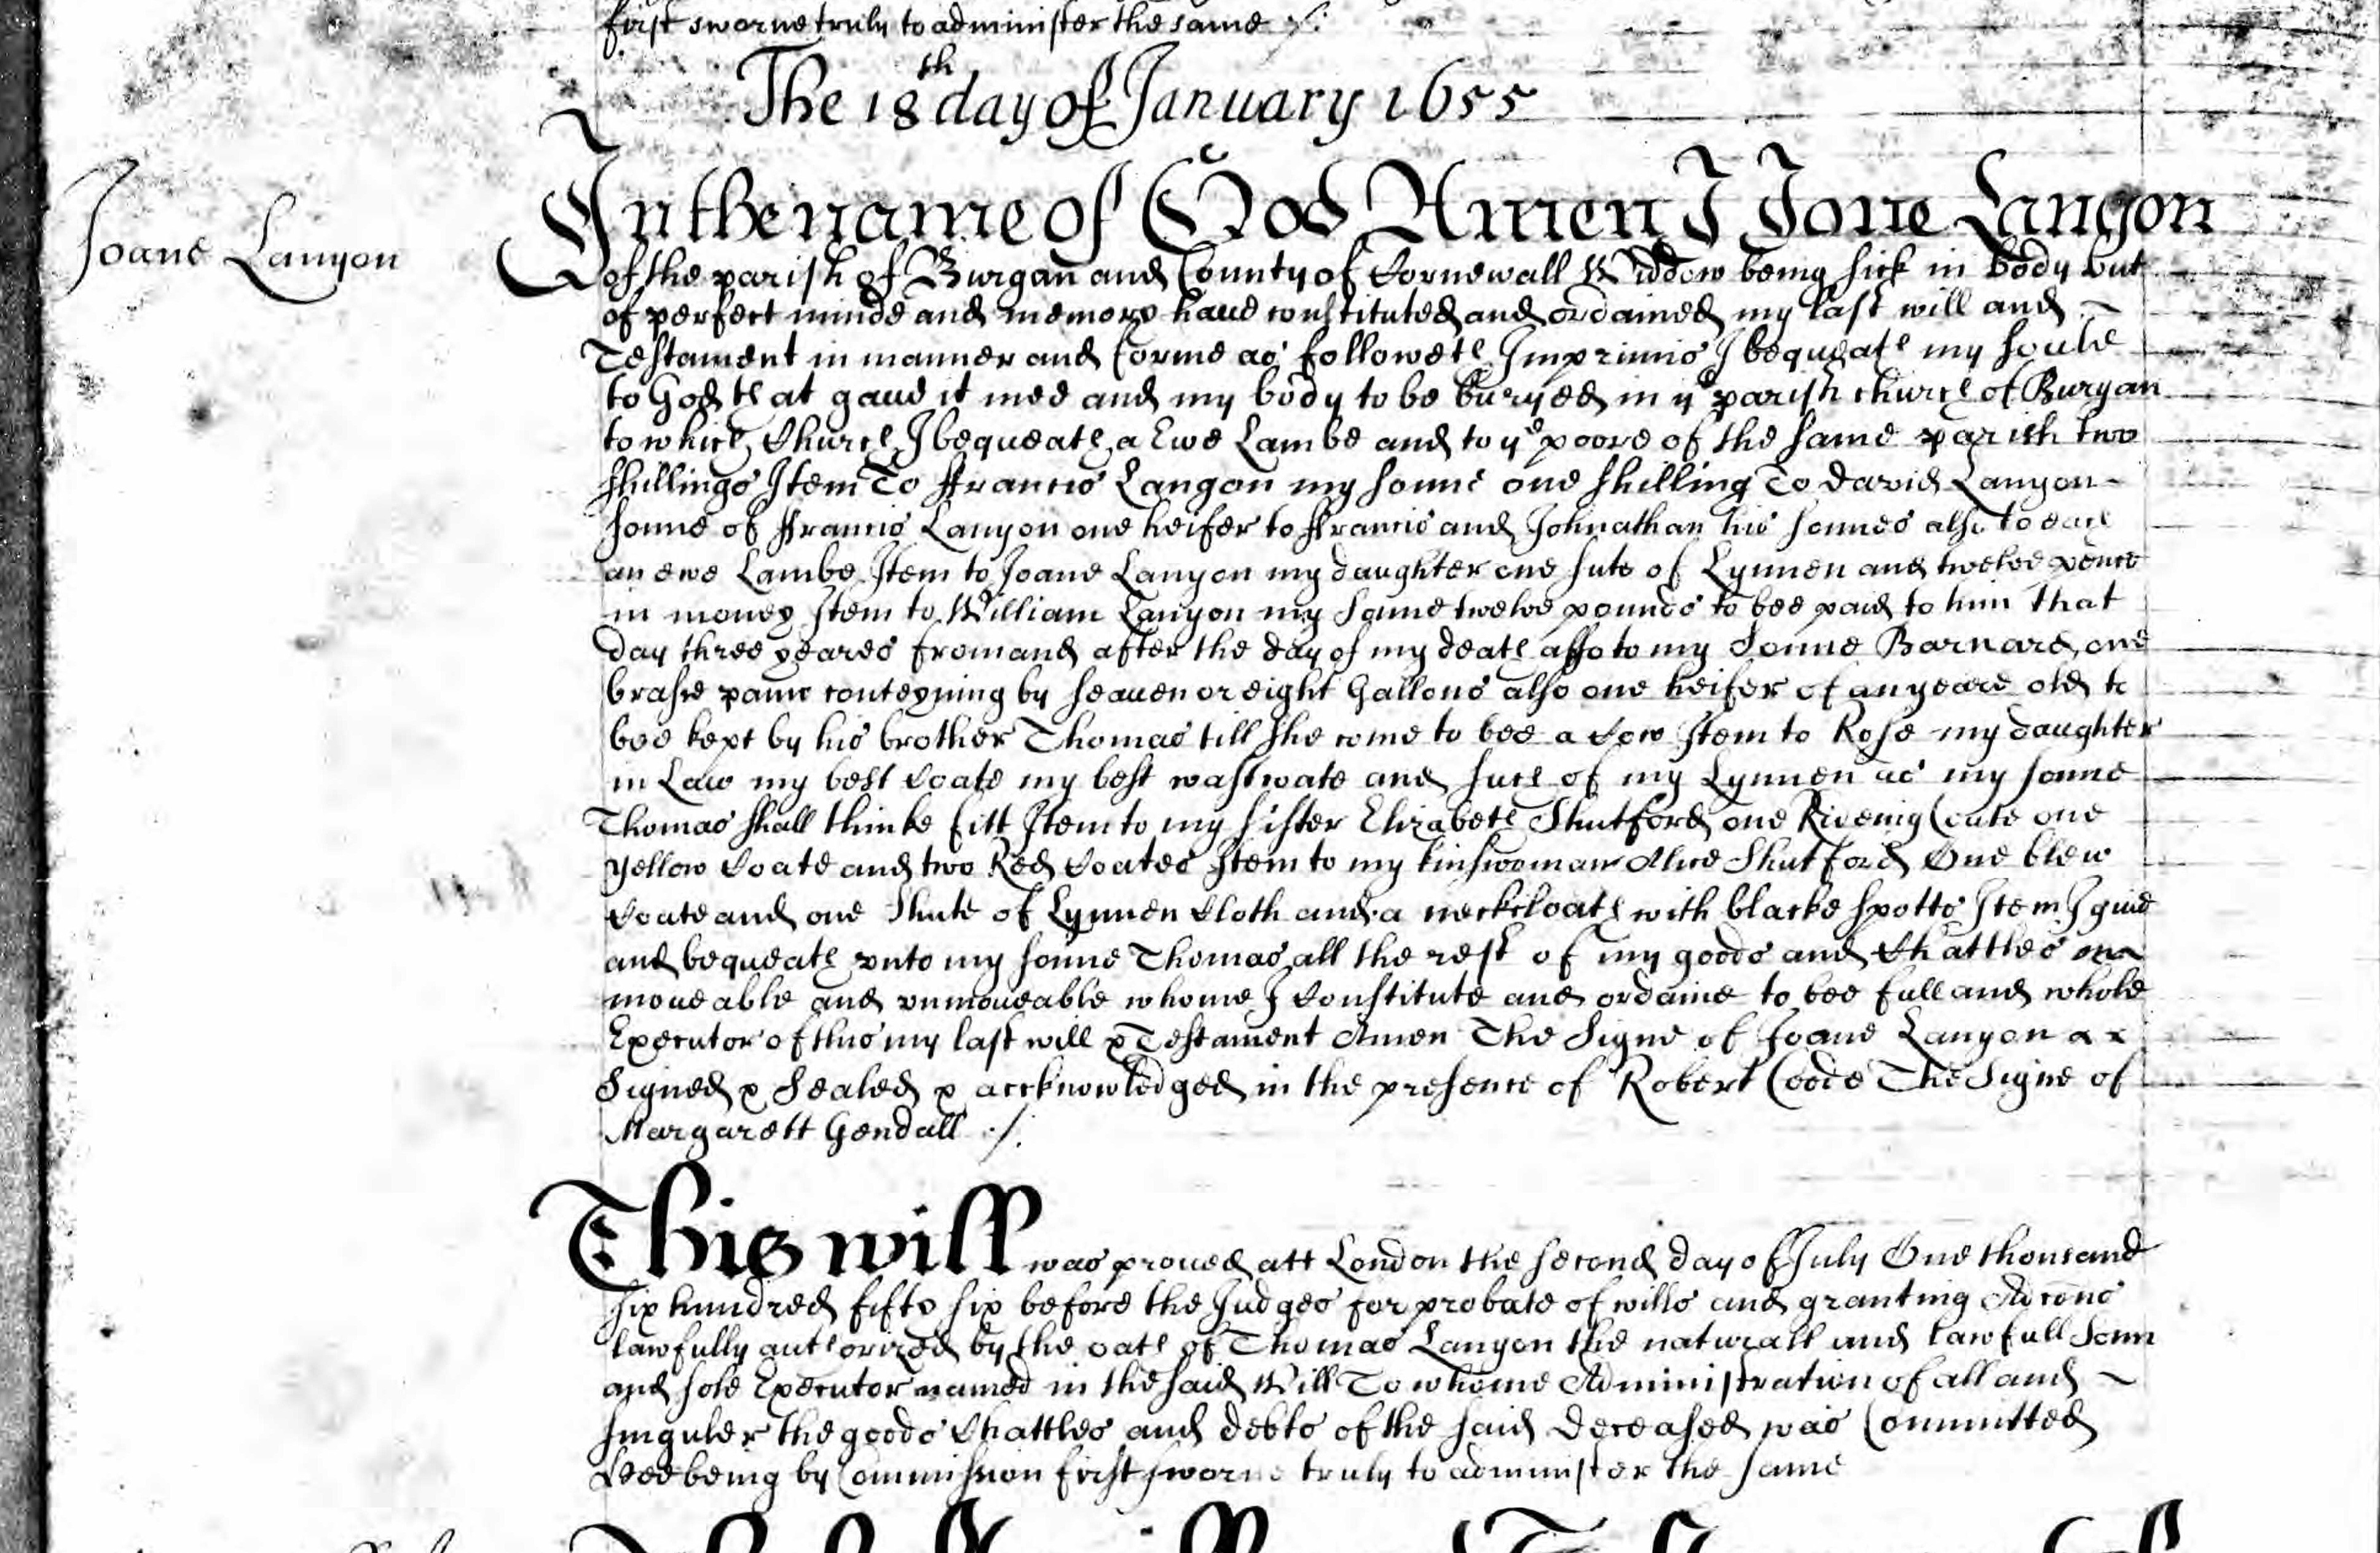 first sworne truly to administer the same ./.
The 18th day of January 1655
Joane Lanyon
In the name of God Amen I Jone Lanyon
of the parish of Burgan and County of Cornewall Widdow being sick in body but
of perfect minde and memory haue constituted and ordained my last will and
Testament in manner and forme as followeth Imprimis I bequeath my soule
to God that gaue it mee and my body to be buryed in ye parish church of Buryan
to which Church I bequeath a Ewe Lambe and to ye poore of the same parish two
shillings Item To Francis Langon my sonne one shilling To David Lanyon
sonne of Francis Lanyon one heifer to Francis and Johnathan his sonnes also to each
an ewe Lambe Item to Joane Lanyon my daughter one sute of Lynnen and twelve pence
in money Item to William Lanyon my sonne twelve pounds to bee paid to him that
day three yeares from and after the day of my death also to my Sonne Barnard one
brasse pann conteyning by seauen or eight Gallons also one heifer of an yeare old to
bee kept by his brother Thomas till she come to bee a Cow Item to Rose my daughter
in Law my best Coate my best wastcoate and such of my Lynnen as my sonne
Thomas shall thinke fitt Item to my sister Elizabeth Shutford one Coate one
yellow Coate and two Red Coates Item to my kinswoman Alice Shutford One blew
Coate and one Shute of Lynnen Cloth and a neckcloath with blacke spotts Item I giue
and bequeath vnto my sonne Thomas all the rest of my goods and Chattles
moueable and vnmoueable whome I Constitute and ordaine to bee full and whole
Executor of this my last will & Testament Amen The Signe of Joane Lanyon
Signed & Sealed & accknowledged in the presence of Robert Coode The Signe of
Margarett Gendall ./.
This will was proued att London the second day of July One thousand
six hundred fifty six before the Judges for probate of wills and granting Adcons
lawfully authorized by the oath of Thomas Lanyon the naturall and lawfull Sonn
and sole Executor named in the said Will To whome Administration of all and
singuler the goods Chattles and debts of the said deceased was Committed
Hee being by Commission first sworne truly to administer the same